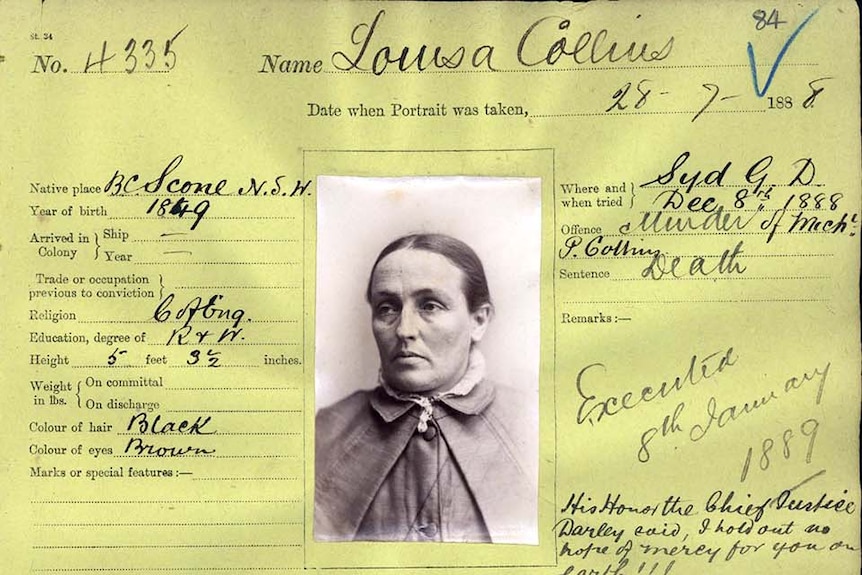 84
St. 34
No. 4335 Name Louisa Collins
Date when Portrait was taken, 28 - 7 - 1888
Native place BC Scone N.S.W.
Year of birth 1849
Arrived in Colony } Ship —
Year —
Trade or occupation previous to conviction }
Religion C of Eng.
Education, degree of R & W.
Height 5 feet 3½ inches.
Weight in lbs. { On committal
On discharge
Colour of hair Black
Colour of eyes Brown
Marks or special features:—
Where and when tried } Syd G. D
Dec. 8th 1888
Offence Murder of Michl.
P. Collins
Sentence Death
Remarks:—
Executed
8th January
1889
His Honor the Chief Justice
Darley said, I hold out no
hope of mercy for you on
earth!!!